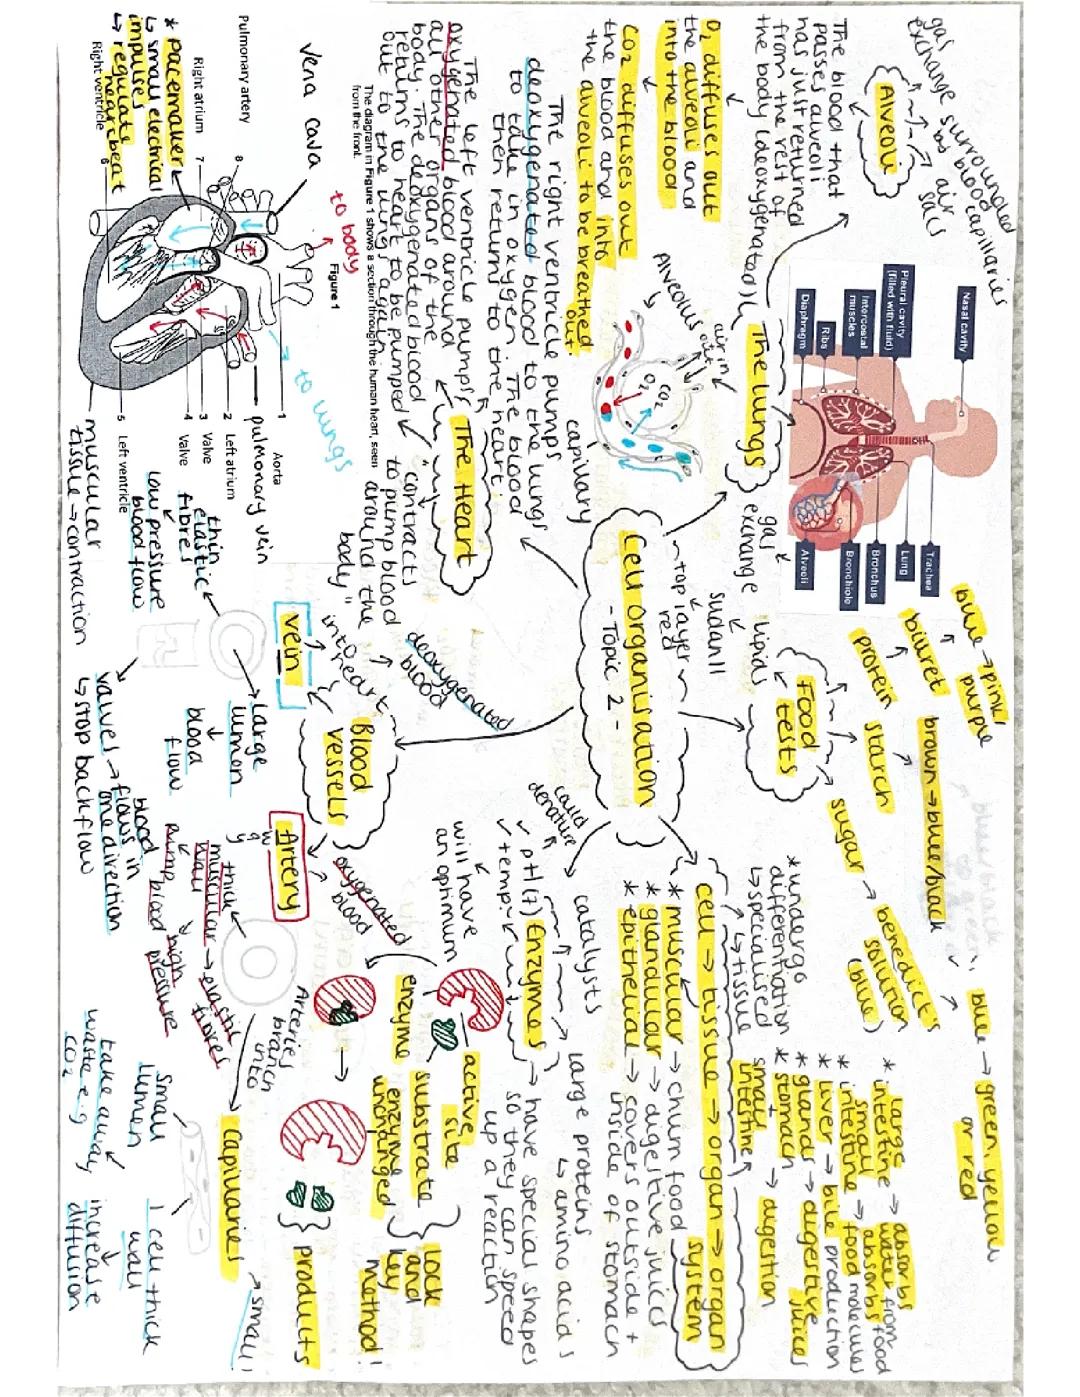 Cell Organisation
- Topic 2 -
The Lungs
gas
exchange
Alveoli
gas
exchange
surrounded
by blood capillaries
air
sacs
The blood that
passes alveoli
has just returned
from the rest of
the body (deoxygenated)
O₂ diffuses out
the alveoli and
into the blood
CO₂ diffuses out
the blood and into
the alveoli to be breathed
out.
Alveolus
air in
out
O₂
CO₂
capillary
Nasal cavity
Pleural cavity
(filled with fluid)
Intercostal
muscles
Ribs
Diaphragm
Trachea
Lung
Bronchus
Bronchiole
Alveoli
The right ventricle pumps
deoxygenated blood to the lungs
to take in oxygen. The blood
then returns to the heart.
The left ventricle pumps
oxygenated blood around
all other organs of the
body. The deoxygenated blood
returns to heart to be pumped
out to the lungs again.
The Heart
"contracts
to pump blood
around the
body"
The diagram in Figure 1 shows a section through the human heart, seen
from the front.
Figure 1
to body
to lungs
vena cava
Pulmonary artery
8
Right atrium
7
* Pacemaker
↳ small electrical
impulses
↳ regulate
heartbeat
Right ventricle
6
1
Aorta
pulmonary vein
2
Left atrium
3
Valve
4
Valve
5
Left ventricle
muscular
tissue → contraction
Food
tests
lipids
sudan II
top layer
red
protein
biuret
blue → pink/
purple
starch
brown → blue/black
sugar
benedict's
solution
(blue)
blue → green, yellow
or red
cell → tissue → organ → organ
system
↳ tissue
* undergo
differentiation
↳ specialised
* muscular → churn food
* glandular → digestive juices
* epithelial → covers outside +
inside of stomach
* large
intestine → absorbs
water from food
* small
intestine → absorbs
food molecules
* liver → bile production
* glands → digestive
juices
* stomach
+
small
intestine
→ digestion
Enzymes
catalysts
large proteins
↳ amino acids
→ have special shapes
so they can speed
up a reaction
✓ pH(7)
✓ temp.
could
denature
will have
an optimum
enzyme
active
site
substrate
enzyme
unchanged
lock
and
key
method!
products
Blood
vessels
deoxygenated
blood
into
heart
vein
thin
elastic
fibres
low pressure
blood flow
large
lumen
blood
flow
valves → blood
flows in
one direction
↳ stop backflow
oxygenated
blood
Artery
thick
muscular
wall → elastic
fibres
pump blood
high
pressure
Arteries
branch
into
Capillaries
→ small!
small
lumen
take away
waste e.g
CO₂
1 cell thick
wall
increase
diffusion